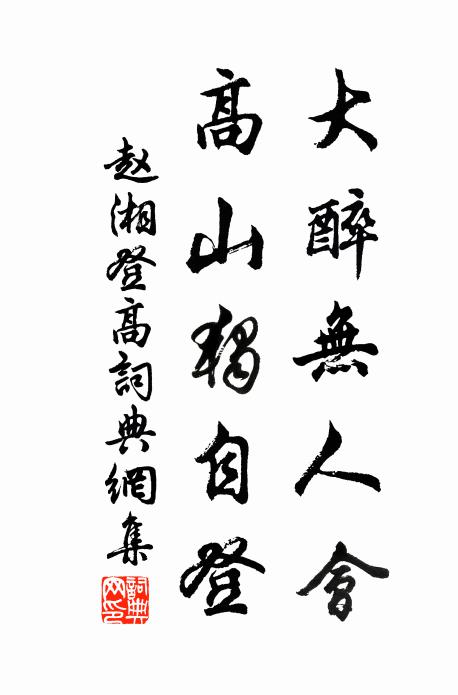 大醉無人會
高山獨自登
赵湘登高詞典網集
詞典網印